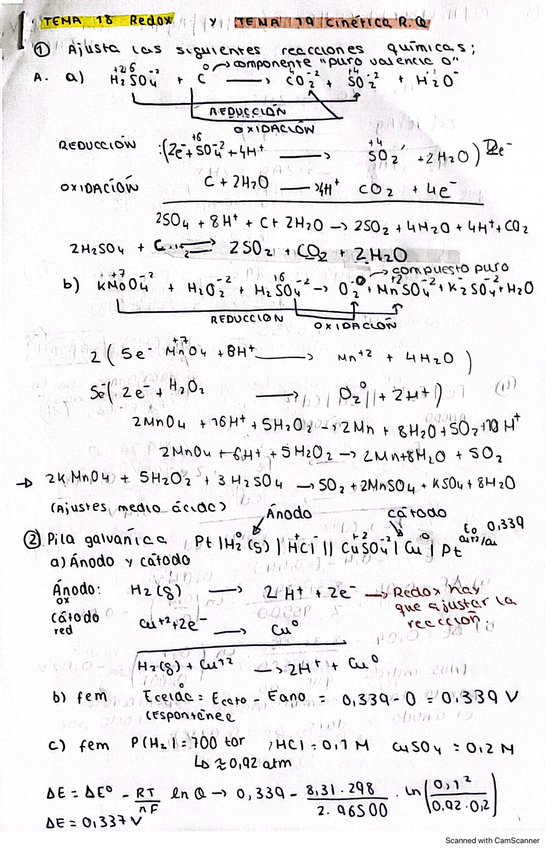 TEMA 18 Redox y TEMA 19 Cinética R.Q
① Ajusta las siguientes reacciones químicas;
componente "puro valencia 0"
A. a) H₂SO₄⁻² + C⁰ → CO₂⁻² + SO₂⁻² + H₂O⁻
REDUCCIÓN
OXIDACIÓN
REDUCCIÓN :(2e⁻+SO₄⁻²+4H⁺ → SO₂ +2H₂O)
OXIDACIÓN C + 2H₂O → 4H⁺ CO₂ + 4e⁻
2SO₄ + 8H⁺ + C + 2H₂O → 2SO₂ + 4H₂O + 4H⁺ + CO₂
2H₂SO₄ + C ⇌ 2SO₂ + CO₂ + 2H₂O
compuesto puro
b) KMnO₄⁻² + H₂O₂⁻² + H₂SO₄⁻² → O₂⁰ + MnSO₄⁻² + K₂SO₄⁻² + H₂O
REDUCCIÓN OXIDACIÓN
2( 5e⁻ MnO₄ +8H⁺ → Mn⁺² + 4H₂O )
5e⁻( 2e⁻ + H₂O₂ → O₂⁰ + 2H⁺)
2MnO₄ + 16H⁺ + 5H₂O₂ → 2Mn + 8H₂O + SO₂ + 10H⁺
2MnO₄ + 6H⁺ + 5H₂O₂ → 2Mn + 8H₂O + SO₂
→ 2KMnO₄ + 5H₂O₂ + 3H₂SO₄ → SO₂ + 2MnSO₄ + KSO₄ + 8H₂O
(Ajustes medio ácido)
Ánodo cátodo
② Pila galvánica Pt | H₂⁰ (g) | HCl || CuSO₄⁻² | Cu | Pt 0,339 Cu⁺²/Cu
a) Ánodo y cátodo
Ánodo: H₂(g) → 2H⁺ + 2e⁻ → Redox hay
ox que ajustar la
cátodo Cu⁺²+2e⁻ → Cu⁰ reacción.
red
H₂(g) + Cu⁺² → 2H⁺ + Cu⁰
b) fem Ecelda = Ecato - Eano = 0,339 - 0 = 0,339 V
(espontánea
c) fem P(H₂) = 700 tor , HCl = 0,1 M CuSO₄ = 0,2 M
↳ ≈ 0,92 atm
ΔE = ΔE⁰ - RT/nF ln Q → 0,339 - 8,31 · 298 / 2 · 96500 · ln (0,1² / 0,92 · 0,2)
ΔE = 0,337 V
Scanned with CamScanner